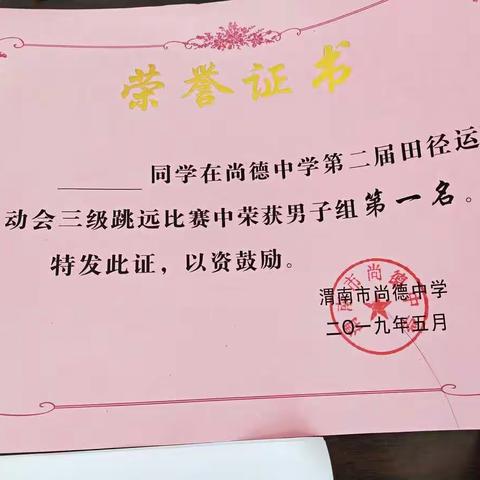 荣誉证书
同学在尚德中学第二届田径运
动会三级跳远比赛中荣获男子组第一名。
特发此证，以资鼓励。
渭南市尚德中学
二〇一九年五月
渭南市尚德中学